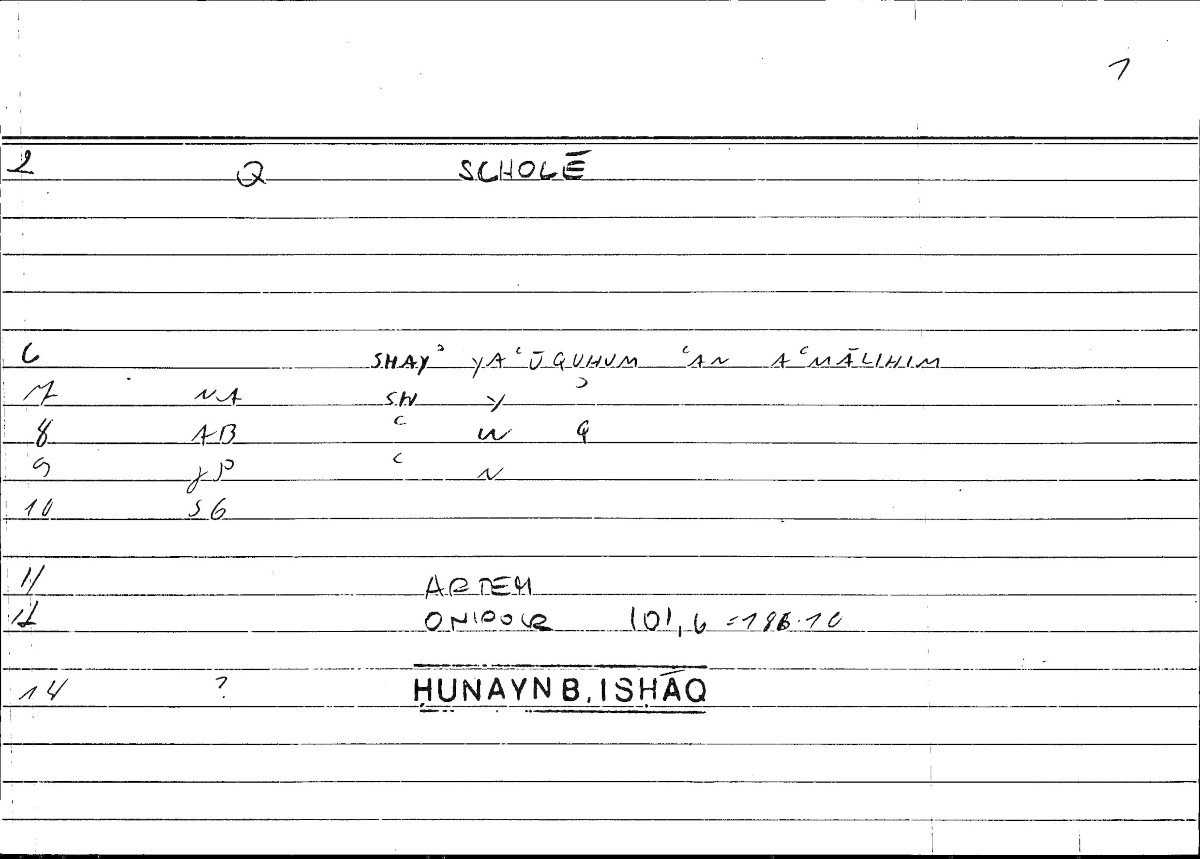 1
2 Q SCHOLĒ
6 SHAYʾ YAʿŪQUHUM ʿAN AʿMĀLIHIM
7 NA SH Y ʾ
8 AB ʿ W Q
9 JP ʿ N
10 SG
11 ARTEM
12 ONIDOCR 101,6 =186.10
14 ? ḤUNAYN B. ISḤĀQ